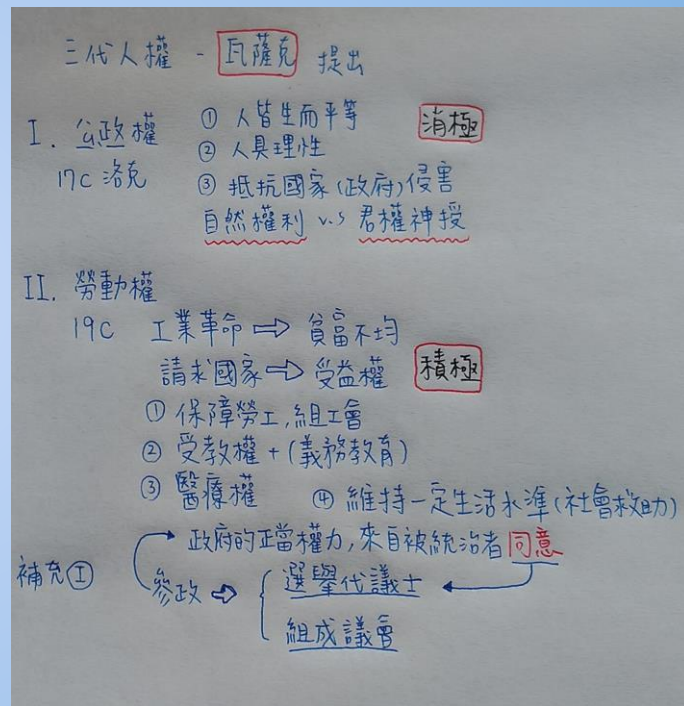 三代人權 - 瓦薩克 提出
I. 公政權 ① 人皆生而平等 消極
17C 洛克 ② 人具理性
③ 抵抗國家(政府)侵害
自然權利 v.s 君權神授
II. 勞動權
19C 工業革命 ⇨ 貧富不均
請求國家 ⇨ 受益權 積極
① 保障勞工,組工會
② 受教權 + (義務教育)
③ 醫療權 ④ 維持一定生活水準(社會救助)
政府的正當權力,來自被統治者 同意
補充① 參政 ⇨ { 選舉代議士
組成議會